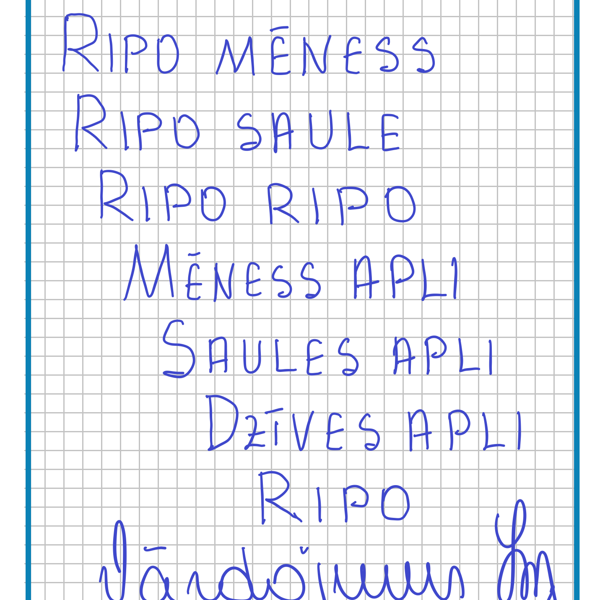 RIPO MĒNESS
RIPO SAULE
RIPO RIPO
MĒNESS APLI
SAULES APLI
DZĪVES APLI
RIPO